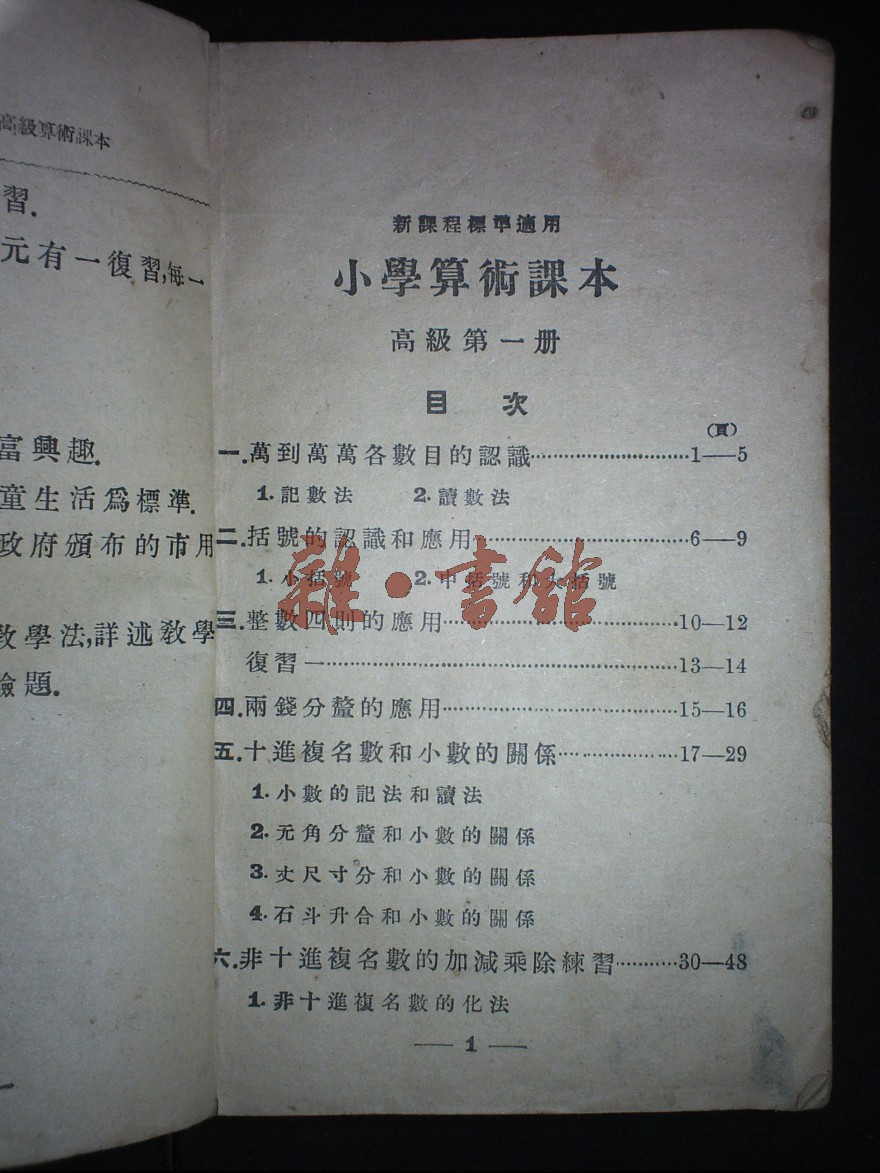 高級算術課本
習.
元有一復習,每一
富興趣.
童生活爲標準.
政府頒布的市用
教學法,詳述教學
驗題.
新課程標準適用
小學算術課本
高級第一册
目 次
(頁)
一.萬到萬萬各數目的認識……………………1—5
1.記數法 2.讀數法
二.括號的認識和應用……………………6—9
1.小括號 2.中括號和大括號
三.整數四則的應用……………………10—12
復習一……………………13—14
四.兩錢分釐的應用……………………15—16
五.十進複名數和小數的關係……………17—29
1.小數的記法和讀法
2.元角分釐和小數的關係
3.丈尺寸分和小數的關係
4.石斗升合和小數的關係
六.非十進複名數的加減乘除練習…………30—48
1.非十進複名數的化法
— 1 —
雜·書館